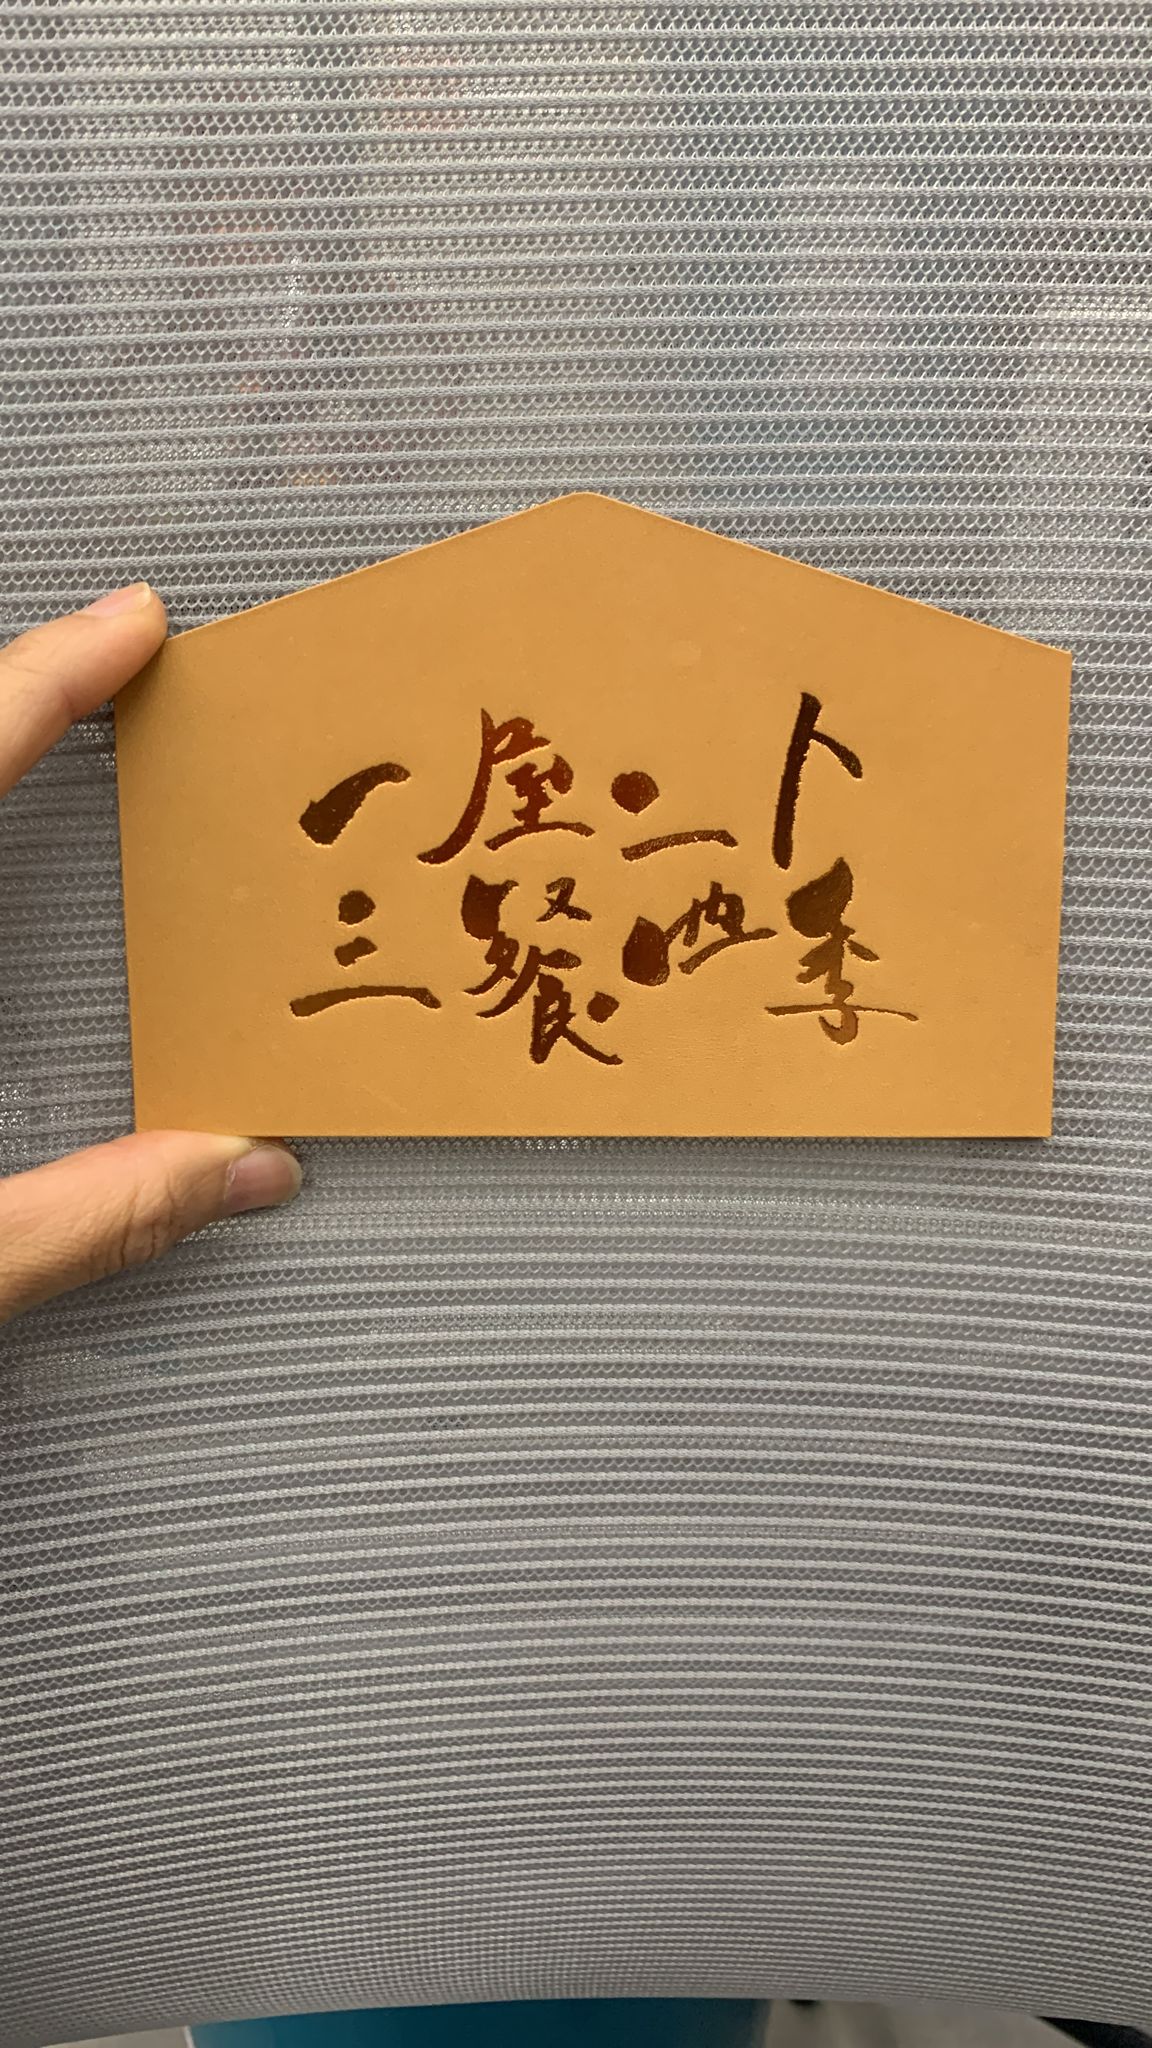 一屋二人
三餐四季